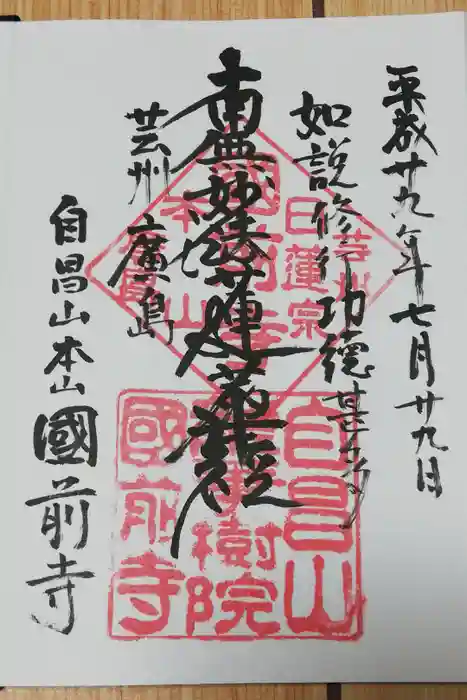 平成廿九年七月廿九日
如説修行功徳甚多
南無妙法蓮華経
芸州
廣島
自昌山本山國前寺
日蓮宗
芸州
本山
國前寺
廣島
自昌山
樹院
國前寺